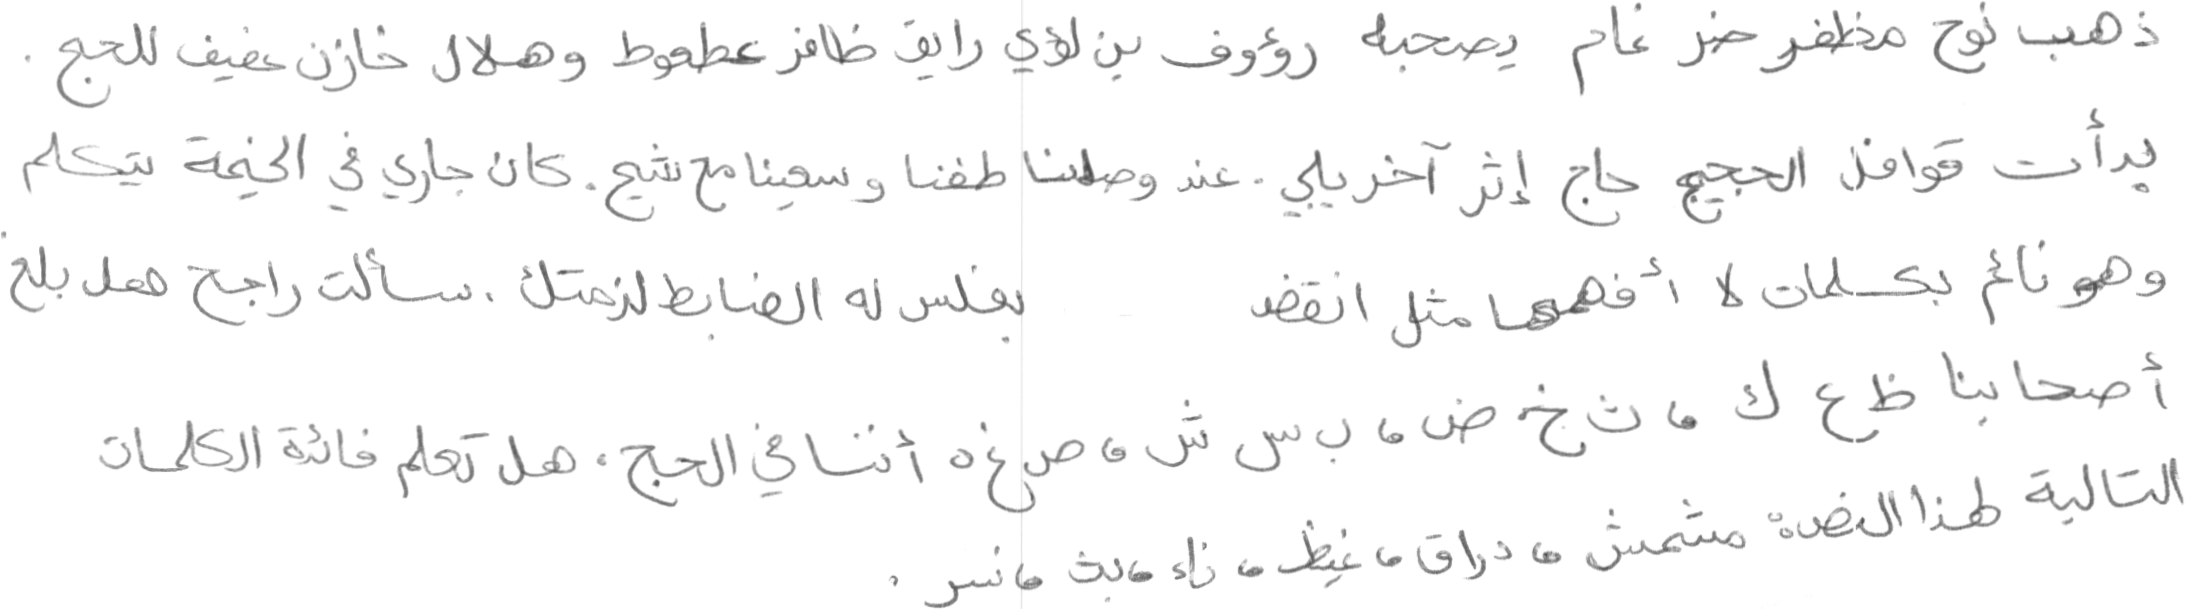 ذهب نوح مظفر ضرغام يصحبه رؤوف بن لؤي رايق ظافر عطعوط وهلال خازن عفيف للحج .
بدأت قوافل الحجيج حاج إثر آخر يلبي . عند وصلنا طفنا وسعينا مع شيخ . كان جاري في الخيمة يتكلم
وهو نائم بكلمات لا أفهمها مثل انقض بغلس له الضابط لزمتك . سألت راجح هل بلغ
أصحابنا ظ ع ك ، ث خ ض ، ب س ش ، ص غ ه أننا في الحج . هل تعلم فائدة الكلمات
التالية لهذا النص مشمش ، دراق ، غيظ ، ناء ، بث ، نسر .